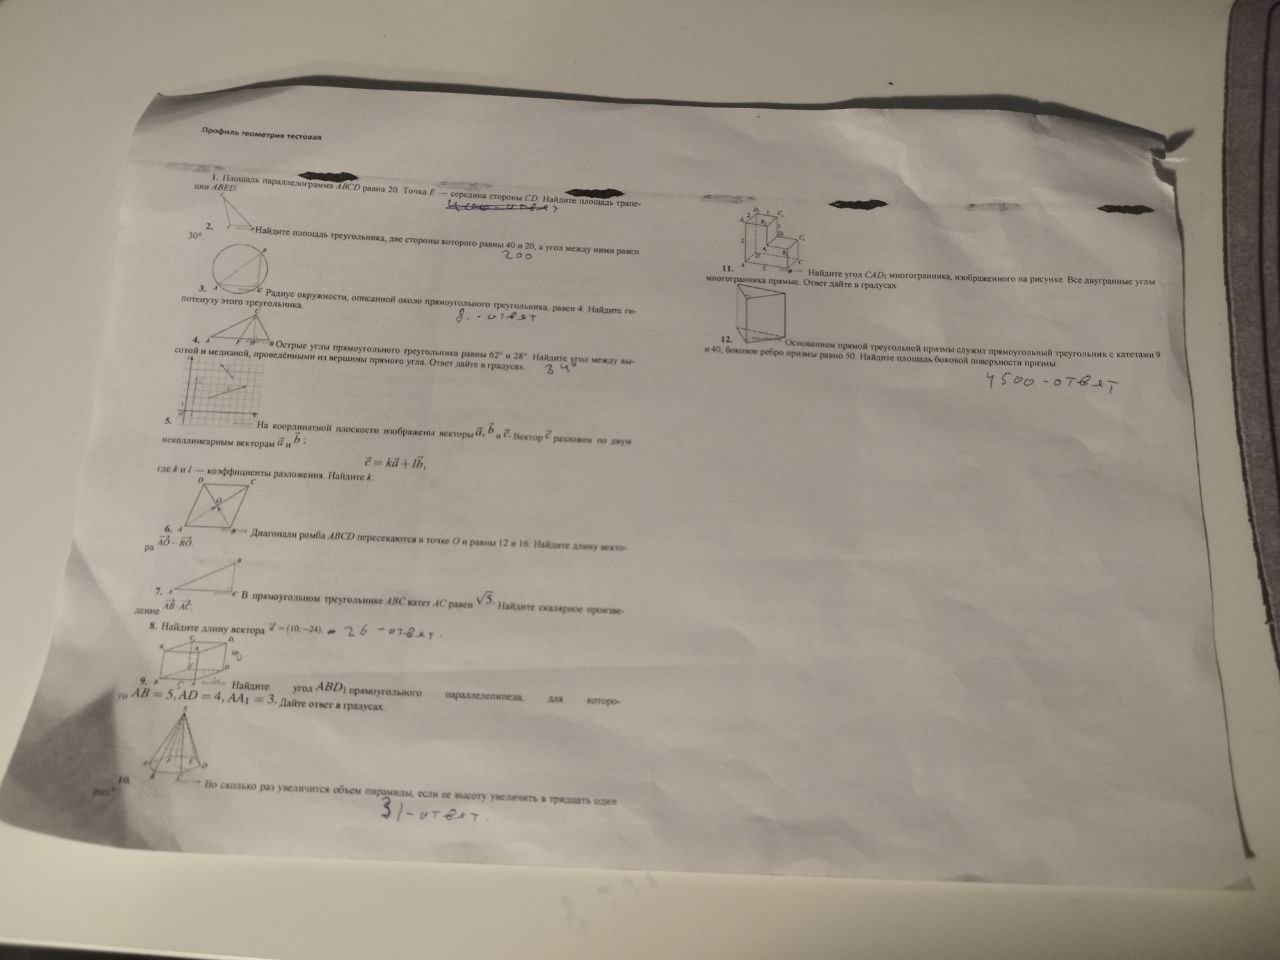 Профиль геометрия тестовая
1. Площадь параллелограмма ABCD равна 20. Точка E — середина стороны CD. Найдите площадь трапе-
ции ABED.
2. Найдите площадь треугольника, две стороны которого равны 40 и 20, а угол между ними равен
30°.
200
3. Радиус окружности, описанной около прямоугольного треугольника, равен 4. Найдите ги-
потенузу этого треугольника.
8. - ответ
4. Острые углы прямоугольного треугольника равны 62° и 28°. Найдите угол между вы-
сотой и медианой, проведёнными из вершины прямого угла. Ответ дайте в градусах.
34°
5. На координатной плоскости изображены векторы a⃗, b⃗ и c⃗. Вектор c⃗ разложен по двум
неколлинеарным векторам a⃗ и b⃗ :
c⃗ = ka⃗ + lb⃗,
где k и l — коэффициенты разложения. Найдите k.
D C
O
A B
6. Диагонали ромба ABCD пересекаются в точке O и равны 12 и 16. Найдите длину векто-
ра AO⃗ − BO⃗.
B
A C
7. В прямоугольном треугольнике ABC катет AC равен √5. Найдите скалярное произве-
дение AB⃗ · AC⃗.
8. Найдите длину вектора a⃗ = (10; −24). - 26 - ответ.
9. Найдите угол ABD₁ прямоугольного параллелепипеда, для которо-
го AB = 5, AD = 4, AA₁ = 3. Дайте ответ в градусах.
10. Во сколько раз увеличится объем пирамиды, если ее высоту увеличить в тридцать один
раз?
31 - ответ.
11. Найдите угол CAD₂ многогранника, изображенного на рисунке. Все двугранные углы
многогранника прямые. Ответ дайте в градусах.
12. Основанием прямой треугольной призмы служит прямоугольный треугольник с катетами 9
и 40, боковое ребро призмы равно 50. Найдите площадь боковой поверхности призмы.
4500 - ответ